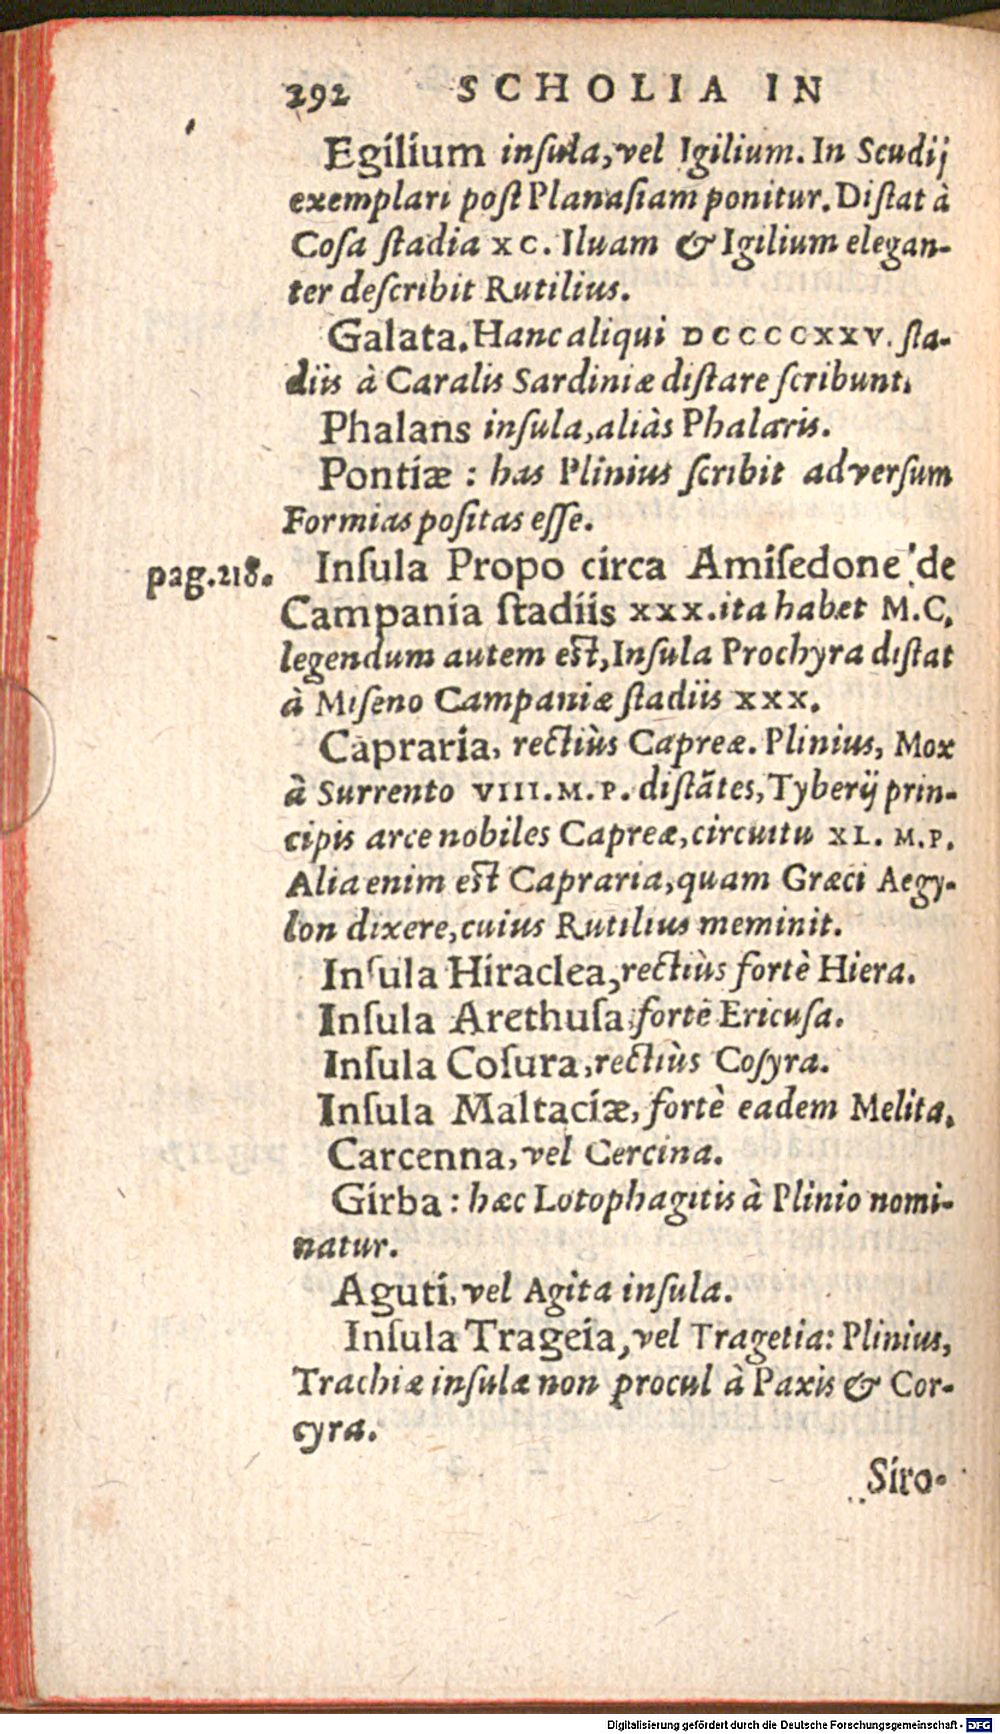 292 SCHOLIA IN
Egilium inſula, vel Igilium. In Scudij
exemplari poſt Planaſiam ponitur. Diſtat à
Coſa ſtadia XC. Iluam & Igilium elegan-
ter deſcribit Rutilius.
Galata. Hanc aliqui DCCCCXXV. ſta-
diis à Caralis Sardiniæ diſtare ſcribunt.
Phalans inſula, aliàs Phalaris.
Pontiæ : has Plinius ſcribit adverſum
Formias poſitas eſſe.
pag.218. Inſula Propo circa Amiſedone de
Campania ſtadiis XXX. ita habet M.C.
legendum autem eſt, Inſula Prochyra diſtat
à Miſeno Campaniæ ſtadiis XXX.
Capraria, rectiùs Capreæ. Plinius, Mox
à Surrento VIII. M. P. diſtãtes, Tyberij prin-
cipis arce nobiles Capreæ, circuitu XL. M.P.
Alia enim eſt Capraria, quam Græci Aegy-
lon dixere, cuius Rutilius meminit.
Inſula Hiraclea, rectiùs fortè Hiera.
Inſula Arethuſa, fortè Ericuſa.
Inſula Coſura, rectiùs Coſyra.
Inſula Maltaciæ, fortè eadem Melita.
Carcenna, vel Cercina.
Girba : hæc Lotophagitis à Plinio nomi-
natur.
Aguti, vel Agita inſula.
Inſula Trageia, vel Tragetia: Plinius,
Trachiæ inſulæ non procul à Paxis & Cor-
cyra.
Siro-
Digitalisierung gefördert durch die Deutsche Forschungsgemeinschaft - DFG